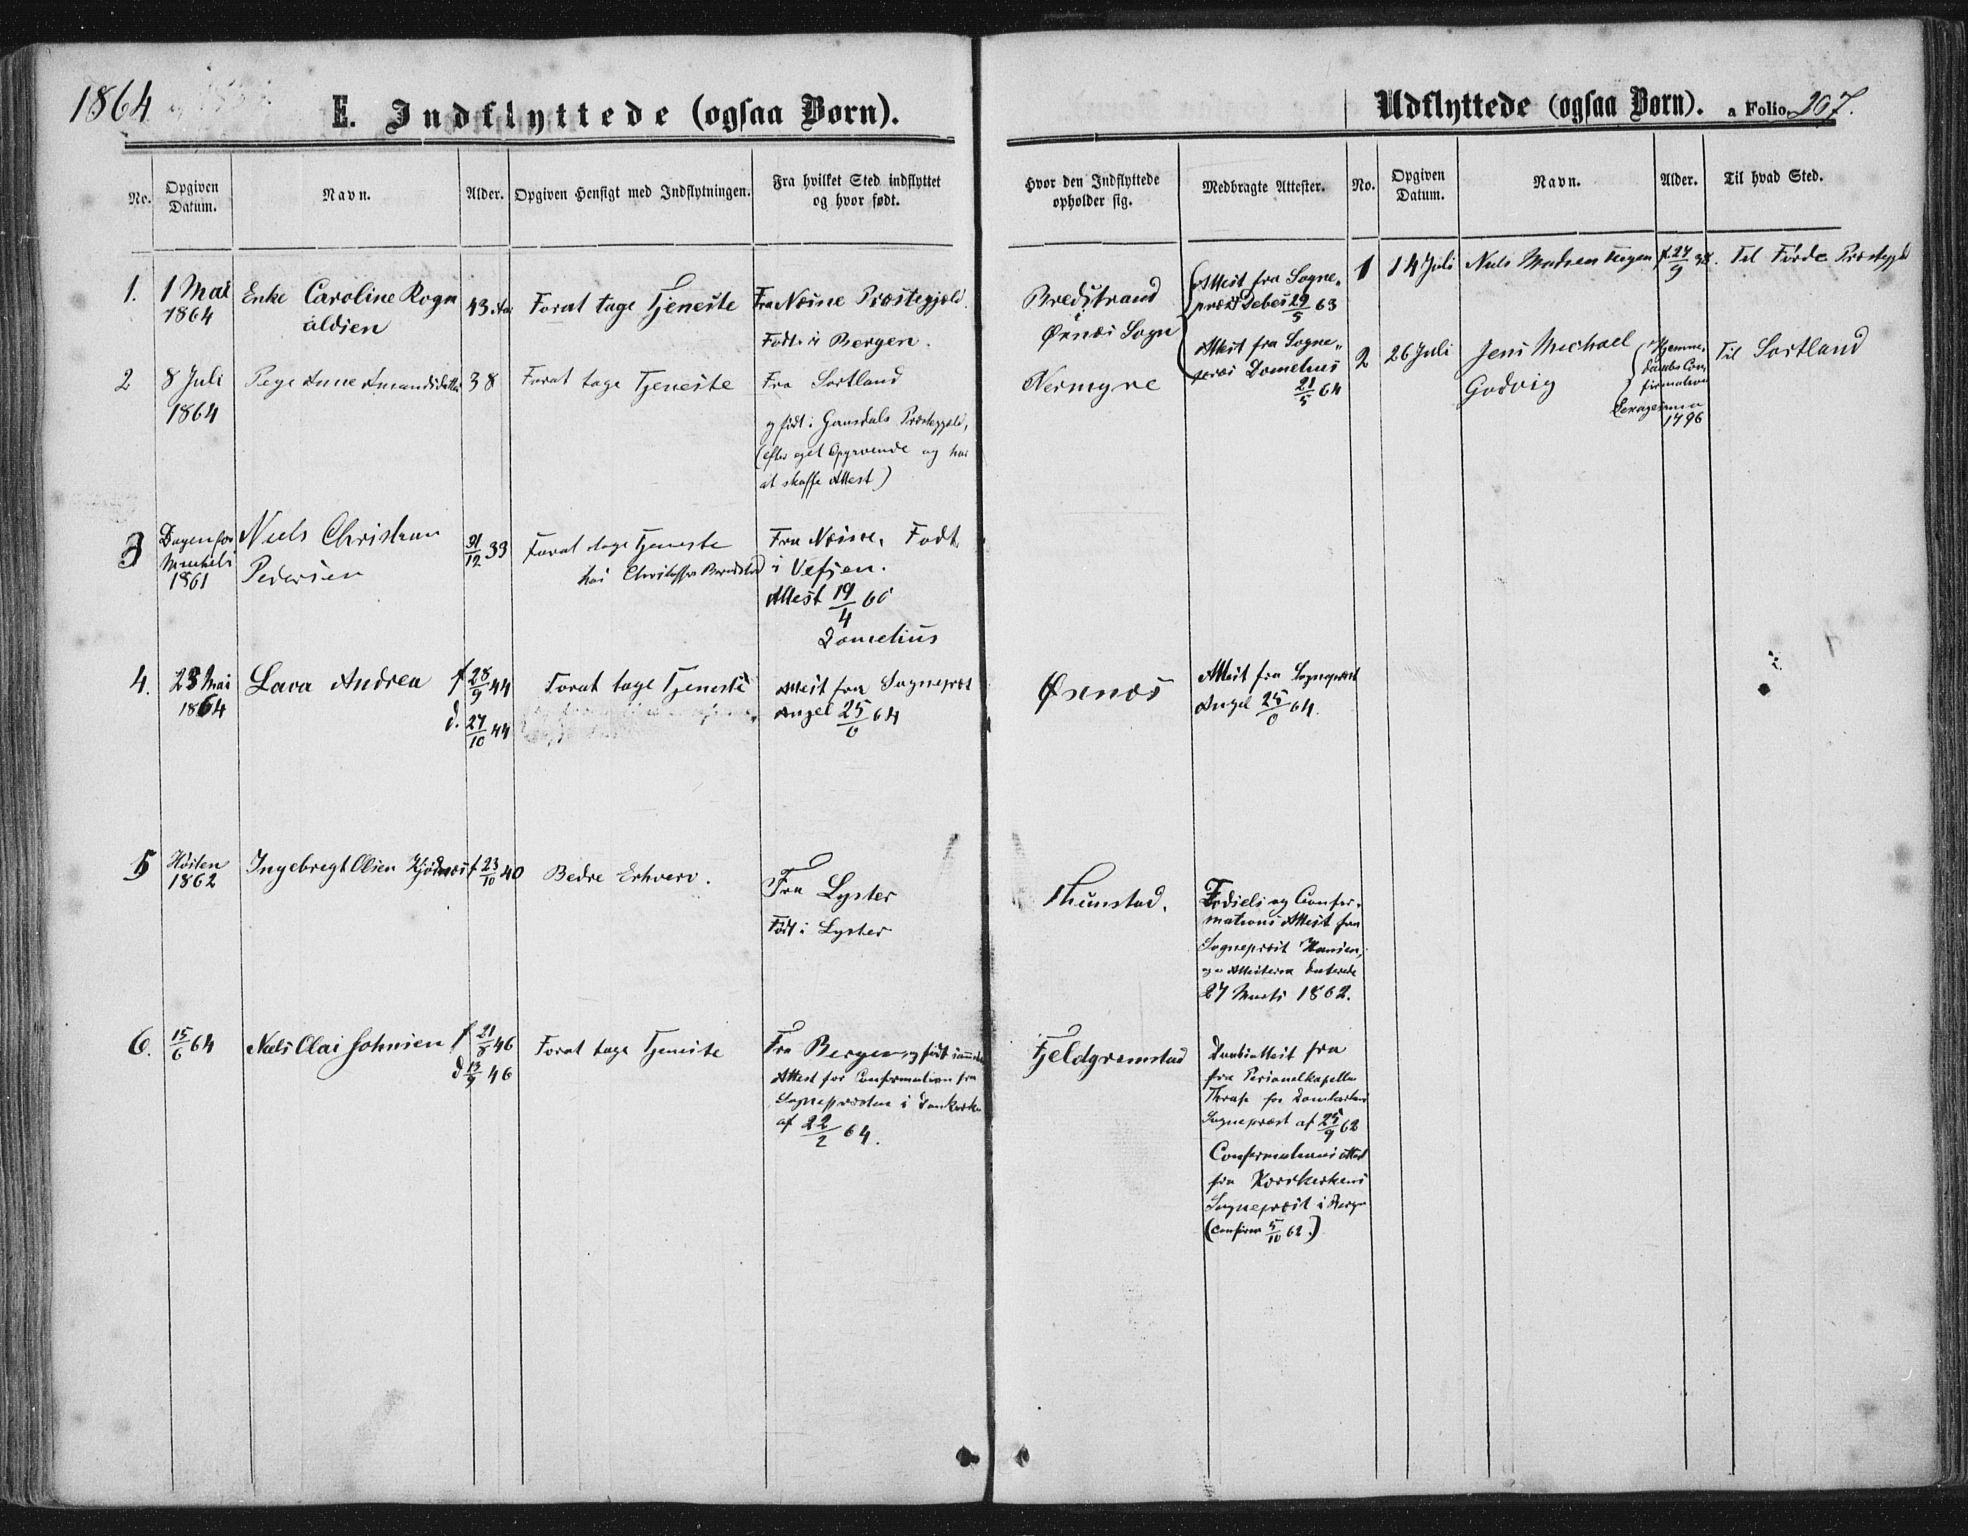 1864
E. Indflyttede (ogsaa Børn).
Udflyttede (ogsaa Børn). a Folio 207.
No. Opgiven Datum. Navn. Alder. Opgiven Hensigt med Indflytningen. Fra hvilket Sted indflyttet og hvor født. Hvor den Indflyttede opholder sig. Medbragte Attester. No. Opgiven Datum. Navn. Alder. Til hvad Sted.
1. 1 Mai
1864
Enke Caroline Rogn
aldsen
43 Aar
Forat tage Tjeneste
Fra Næsne Præstegjæld
Født i Bergen.
Bredstrand
Øxnæs Sogn
Attest fra Sogne-
præst Debes 29/5 63
2 8 Juli
1864
Pige Anne Amandsdatter
38
Forat tage Tjeneste
Fra Sortland
og født i Præstegjæld,
(efter eget Opgivende og har
at skaffe Attest)
Nermyre
Attest fra Sogne-
præst Zomelius
21/5 64
3 Dagen før
Micheli
1861
Niels Christian
Pedersen
31/12 33
Forat tage Tjeneste
hos Christoffer
Fra Næsne. Født
i Vefsen.
Attest 19/4 60
Zomelius
4. 23 Mai
1864
Lava Andrea
f 28/9 44
d. 27/10 44
Forat tage Tjeneste
Attest fra Sognepræst
Angel 25/6 64
Øxnæs
Attest fra Sognepræst
Angel 25/6 64.
5 Høsten
1862
Ingebregt Olsen
f 23/10 40
Bedre Erhverv.
Fra Lyster
Født i Lyster
Thunstad.
Fødsels og Confir-
mations Attest fra
Sognepræst Hansen,
Attesterne daterede
27 Marts 1862.
6. 15/6 64
Niels Olai Johnsen
f 21/8 46
d 13/9 46
Forat tage Tjeneste
Fra Bergen og født samme
Attest for Confirmation fra
Sognepræsten i Domkirken
af 22/2 64.
Fjeldgremstad
Daabsattest fra
fra Personelkapellan
for Domkirkens
Sognepræst af 25/9 62
Confirmations Attest
fra Korskirkens
Sognepræst i Bergen
(confirm 5/10 62.)
1 14 Juli
Niels Madsen
f. 27/9 38.
Til Førde Præstegjd
2 26 Juli
Jens Michael
Godvig
Hjemme-
daabs Con-
firmation
Sexagesima
1796
Til Sortland